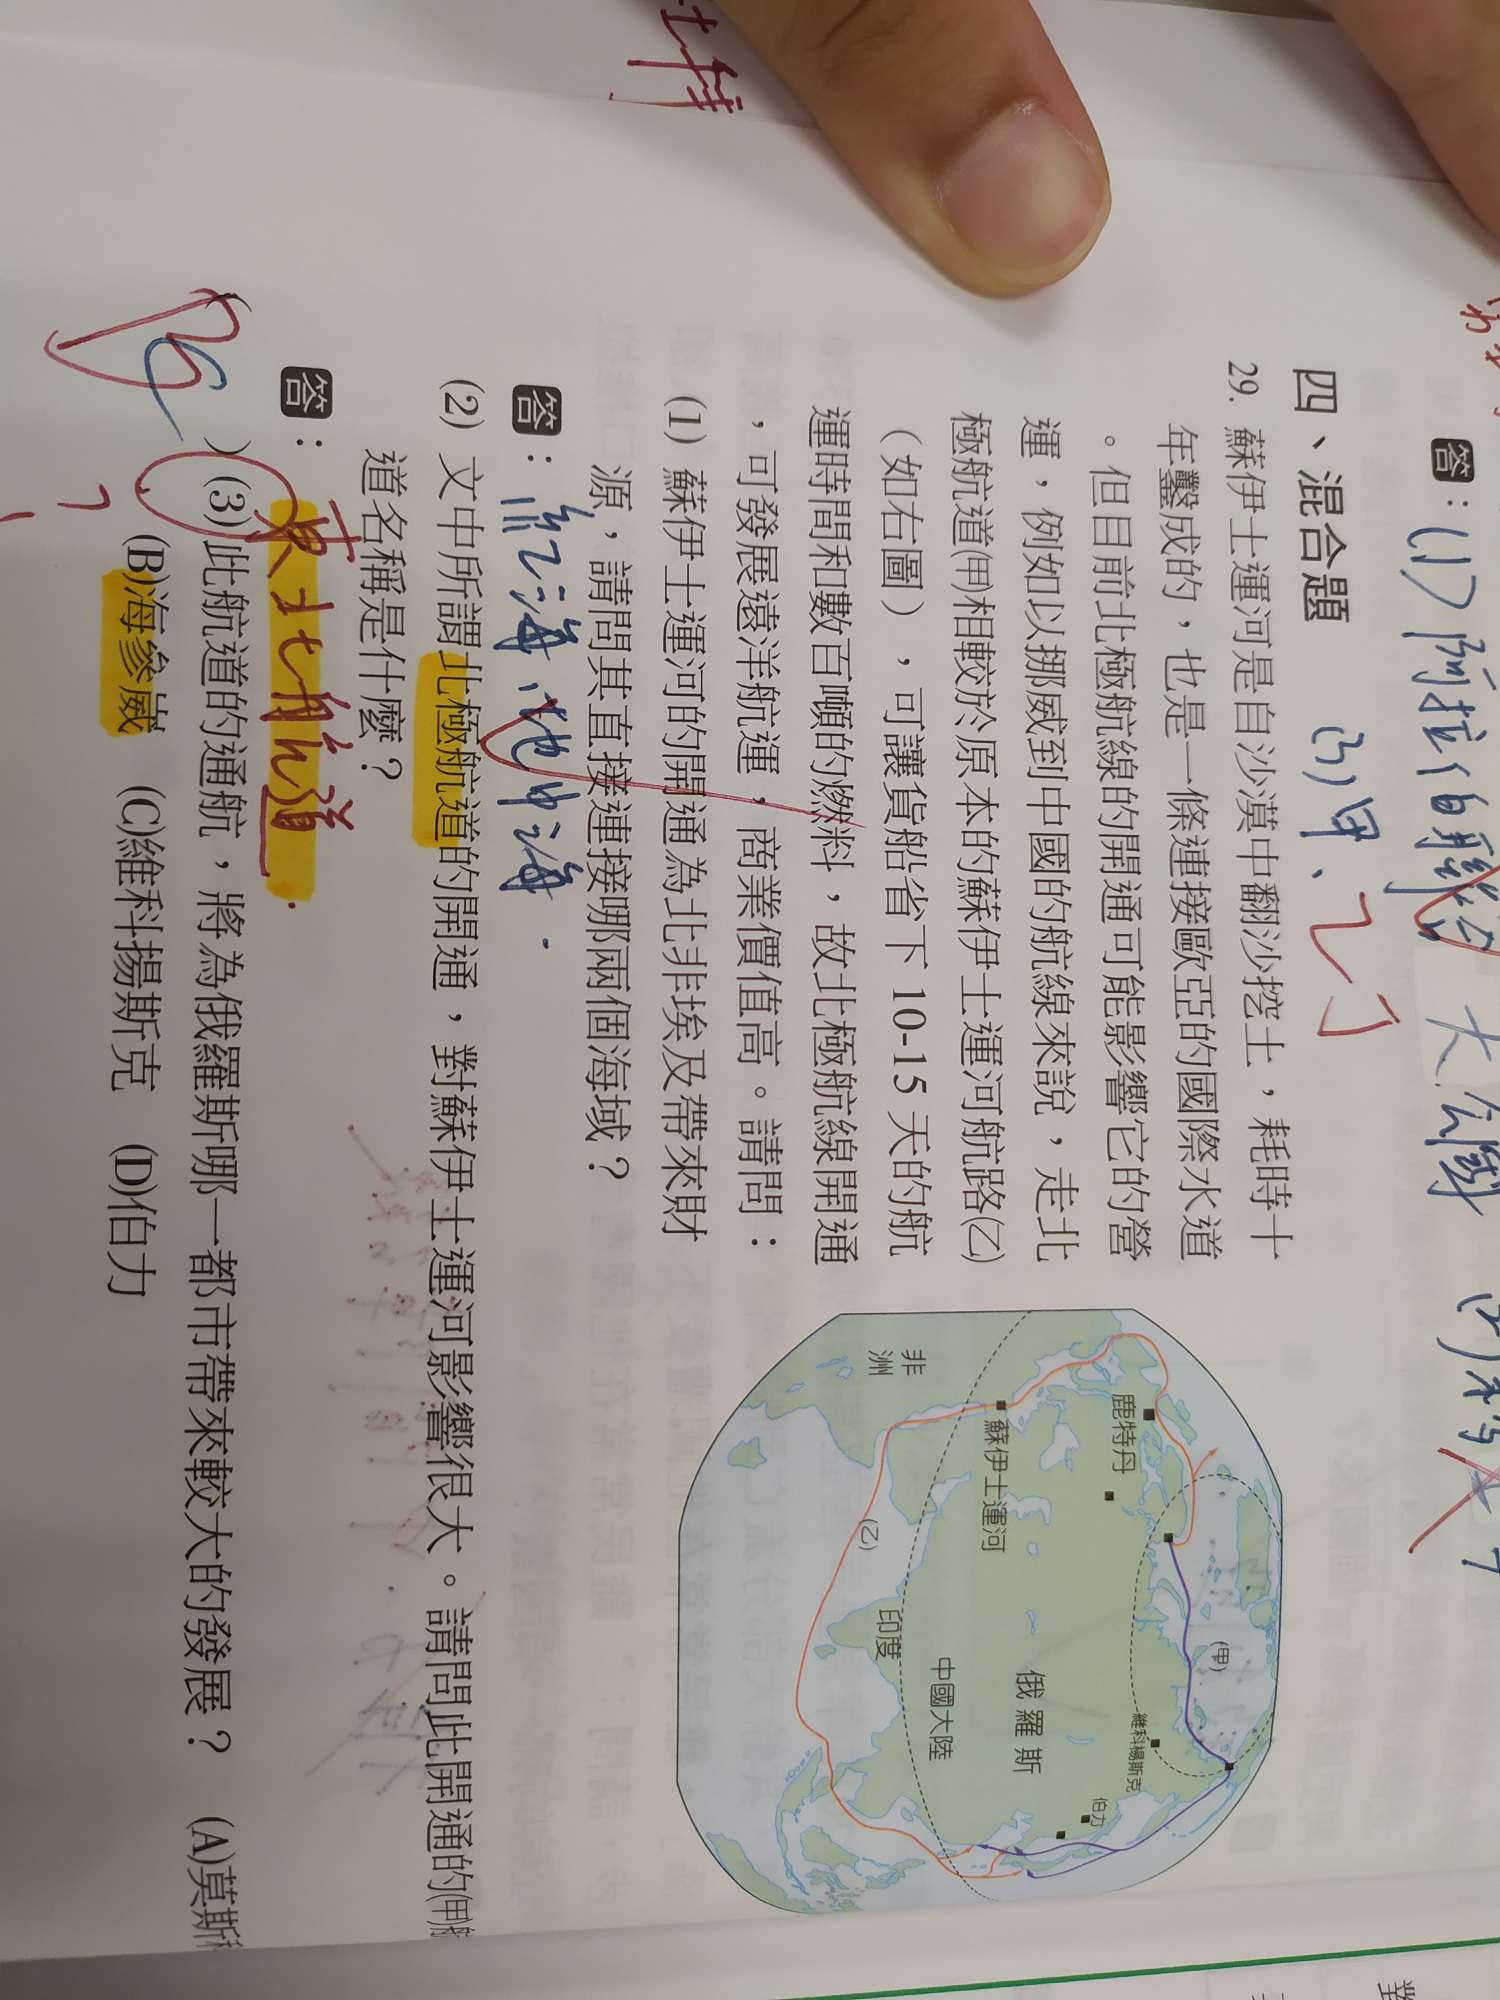 答：(1)阿拉伯聯合大公國
(3)甲、乙、丁
四、混合題
29. 蘇伊士運河是自沙漠中翻沙挖土，耗時十
年鑿成的，也是一條連接歐亞的國際水道
。但目前北極航線的開通可能影響它的營
運，例如以挪威到中國的航線來說，走北
極航道(甲)相較於原本的蘇伊士運河航路(乙)
（如右圖），可讓貨船省下 10-15 天的航
運時間和數百噸的燃料，故北極航線開通
，可發展遠洋航運，商業價值高。請問：
(1) 蘇伊士運河的開通為北非埃及帶來財
源，請問其直接連接哪兩個海域？
答：紅海，地中海．
(2) 文中所謂北極航道的開通，對蘇伊士運河影響很大。請問此開通的(甲)航
道名稱是什麼？
答：東北航道
(3) 此航道的通航，將為俄羅斯哪一都市帶來較大的發展？ (A)莫斯科
(B)海參崴 (C)維科揚斯克 (D)伯力
鹿特丹
蘇伊士運河
非洲
(甲)
(乙)
印度
中國大陸
俄羅斯
維科楊斯克
伯力